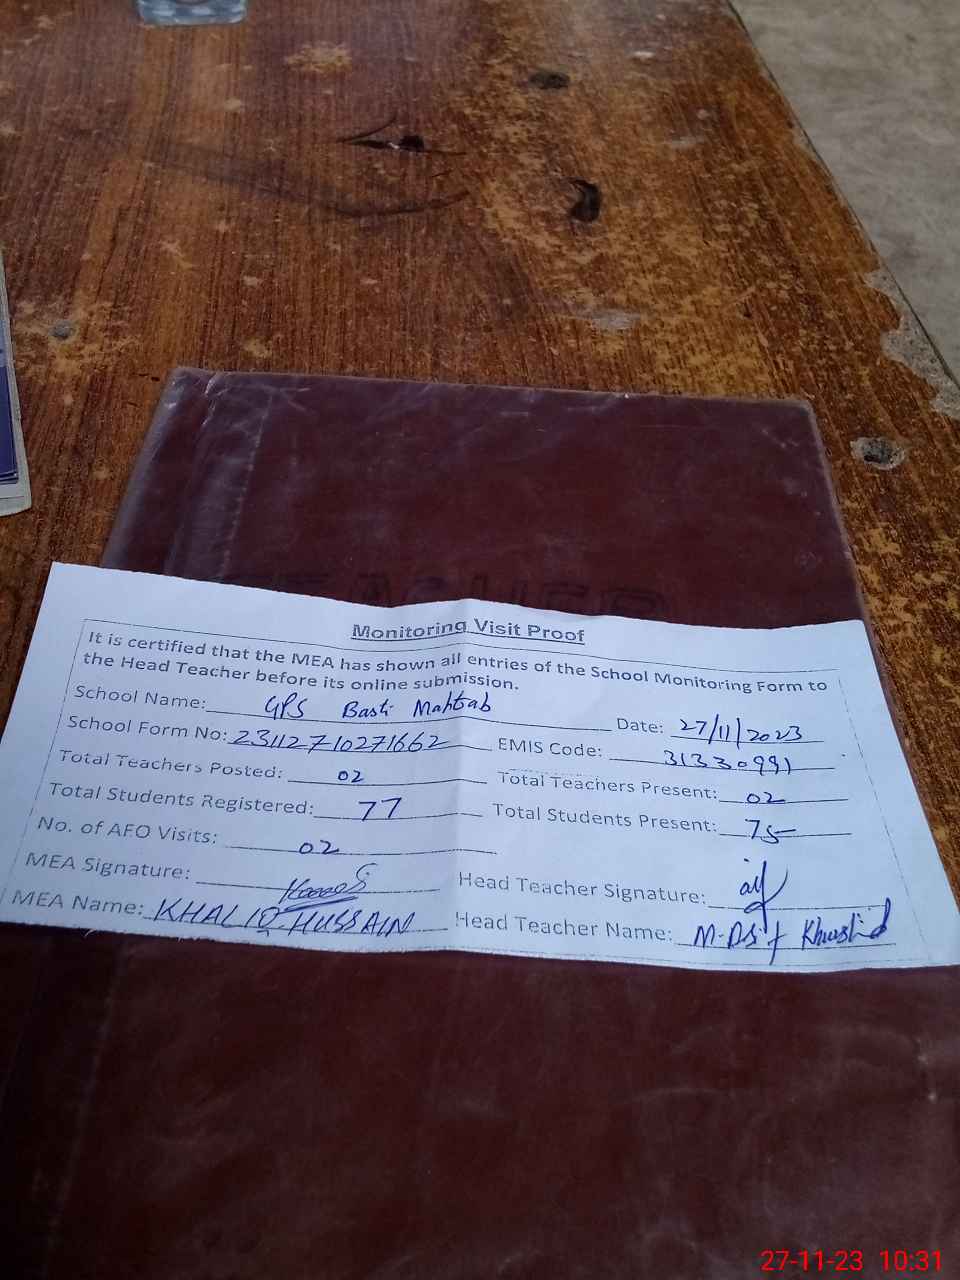 TEACHER
Monitoring Visit Proof
It is certified that the MEA has shown all entries of the School Monitoring Form to
the Head Teacher before its online submission.
School Name: GPS Basti Mahtab Date: 27/11/2023
School Form No: 23112710271662 EMIS Code: 31330991
Total Teachers Posted: 02 Total Teachers Present: 02
Total Students Registered: 77 Total Students Present: 75
No. of AEO Visits: 02
MEA Signature: Head Teacher Signature:
MEA Name: KHALIQ HUSSAIN Head Teacher Name: Khurshid
27-11-23 10:31